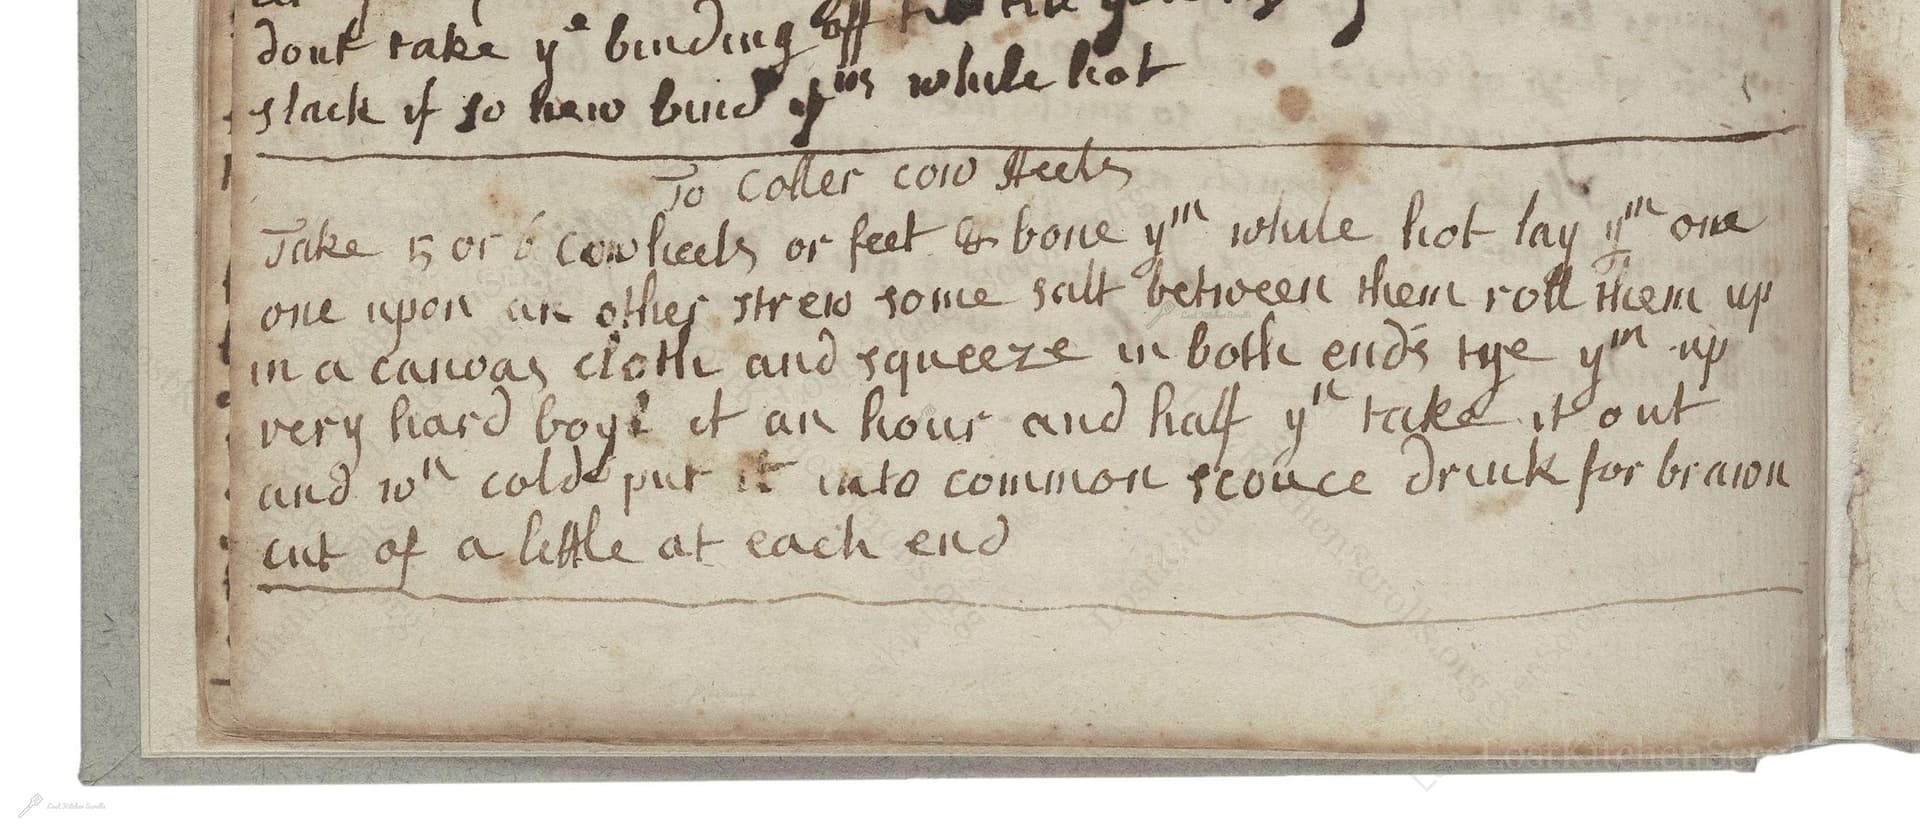 dont take yᵉ binding off
slack if so new bind yᵐ while hot
To Coller cow Heels
Take 5 or 6 Cowheels or feet & bone yᵐ while hot lay yᵐ one
one upon an other strew some salt between them roll Them up
in a canvas cloth and squeeze in both ends tye yᵐ up
very hard boyl it an hour and half yⁿ take it out
and wⁿ cold put it into common scouce drink for brawn
cut of a little at each end
LostKitchenScrolls.org
Lost Kitchen Scrolls